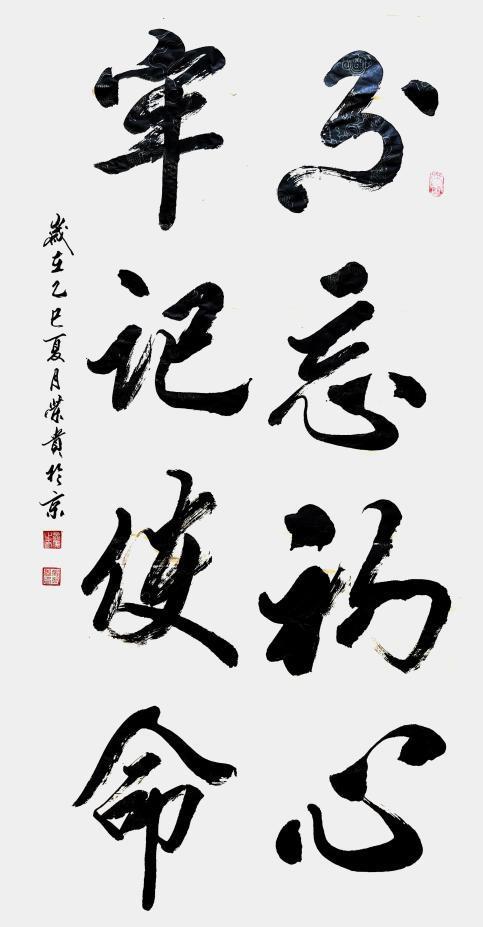 不忘初心
牢记使命
歲在乙巳夏月荣贵於京